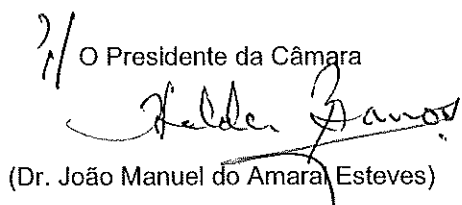 P'/ O Presidente da Câmara
Helder Barros
(Dr. João Manuel do Amaral Esteves)